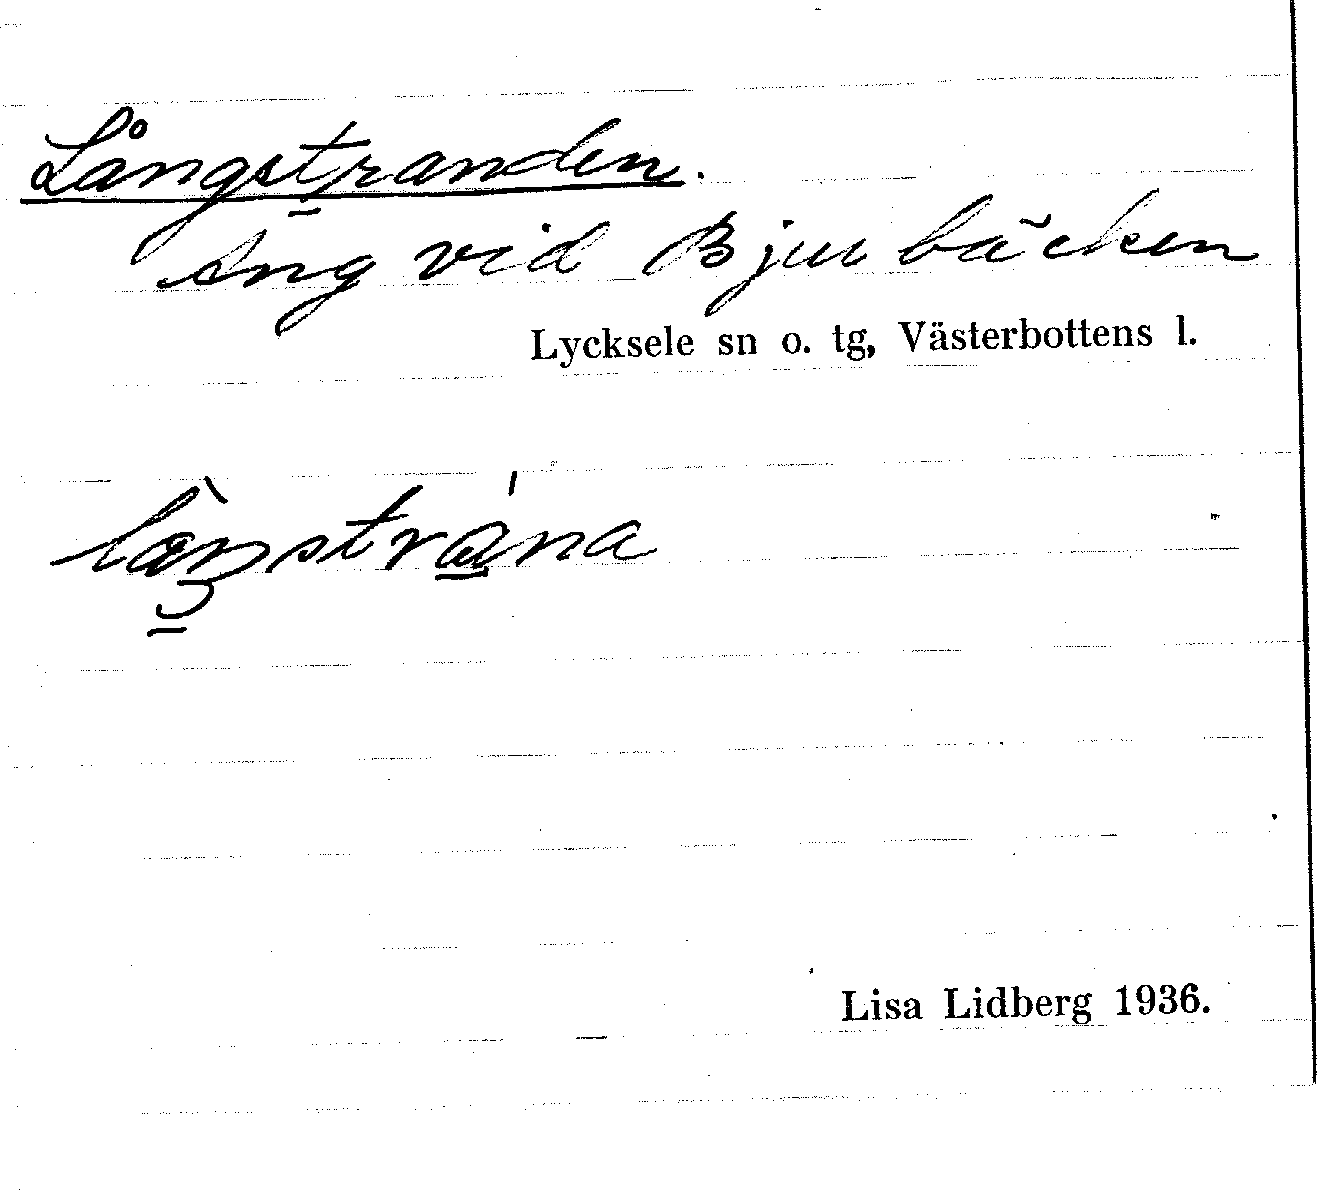 Långstranden.
Äng vid Bjurbäcken
Lycksele sn o. tg, Västerbottens l.
Lisa Lidberg 1936.